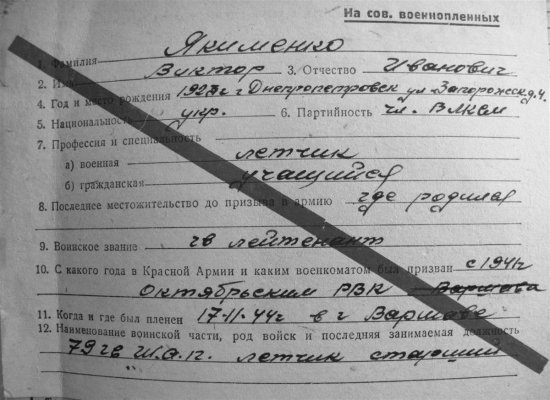 На сов. военнопленных
1. Фамилия Якименко
2. Имя Виктор 3. Отчество Иванович
4. Год и место рождения 1923 г г Днепропетровск ул Запорожск д. 4.
5. Национальность укр. 6. Партийность чл. ВЛКСМ
7. Профессия и специальность
а) военная летчик
б) гражданская учащийся
8. Последнее местожительство до призыва в армию где родился
9. Воинское звание гв лейтенант
10. С какого года в Красной Армии и каким военкоматом был призван с 1941 г
Октябрьским РВК Варшова
11. Когда и где был пленен 17-11-44 г в г Варшаве
12. Наименование воинской части, род войск и последняя занимаемая должность
79 гв Ш.а.п. летчик старший